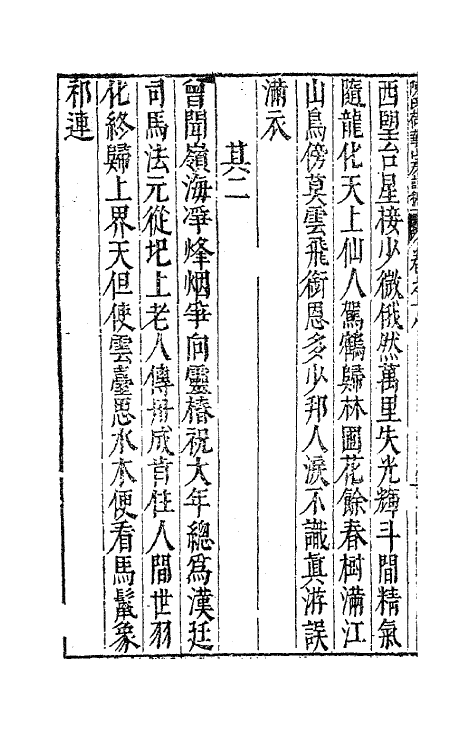 西望台星接少微俄然萬里失光輝斗間精氣
隨龍化天上仙人駕鶴歸林園花餘春樹滿江
山鳥傍莫雲飛銜恩多少邦人淚不識眞游誤
滿衣
其二
曾聞嶺海淨烽烟爭向靈椿祝大年總爲漢廷
司馬法元從圯上老人傳丹成肯住人間世羽
化終歸上界天但使雲臺思水木便看馬鬛象
祁連